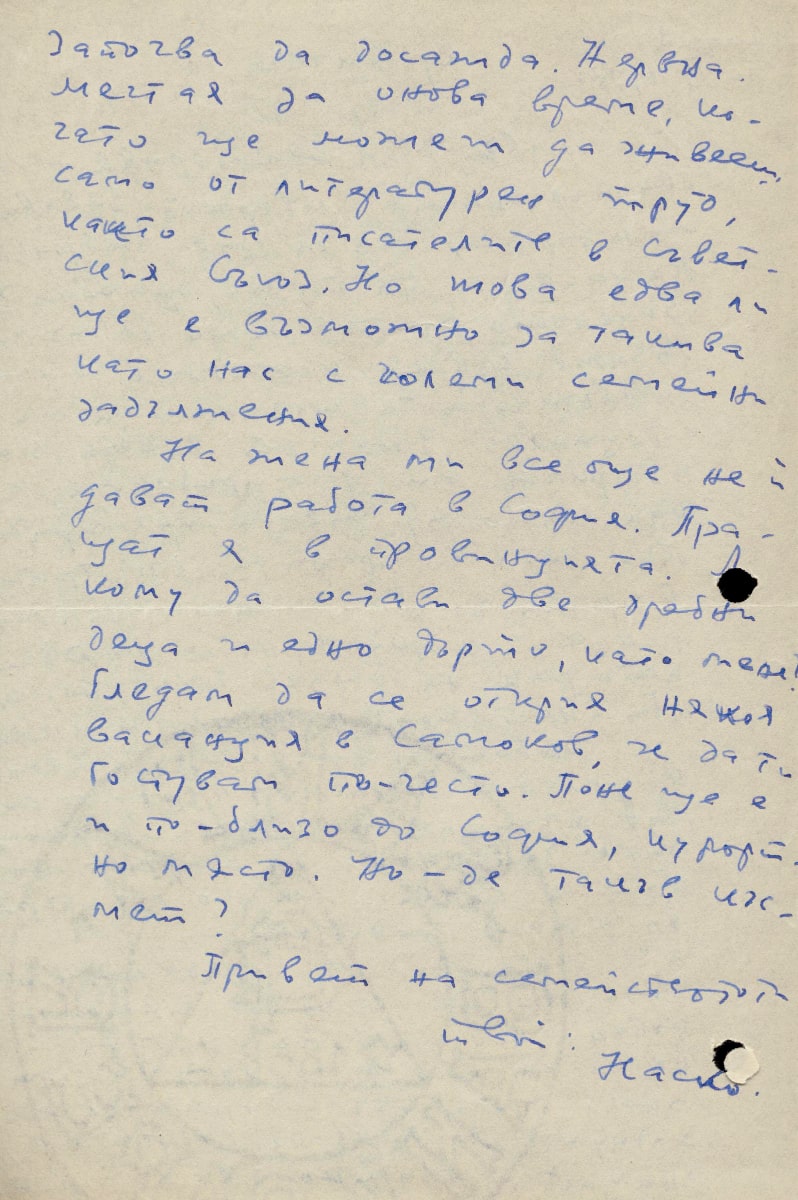 започва да досажда. Нервна.
мечтая за онова време, ко-
гато ще можем да живеем
само от литературен труд,
както са писателите в Съвет-
ския Съюз. Но това едва ли
ще е възможно за такива
като нас с големи семейни
задължения.
На жена ми все още не ѝ
дават работа в София. Пра-
щат я в провинцията. А
кому да остави две дребни
деца и едно дърто, като мене?
Гледам да се открие някоя
ваканция в Самоков, че да ти
гостувам по-често. Поне ще е
и по-близо до София, курорт-
но място. Но-де такъв къс-
мет?
Привет на семейството ти
твой:
Наско.